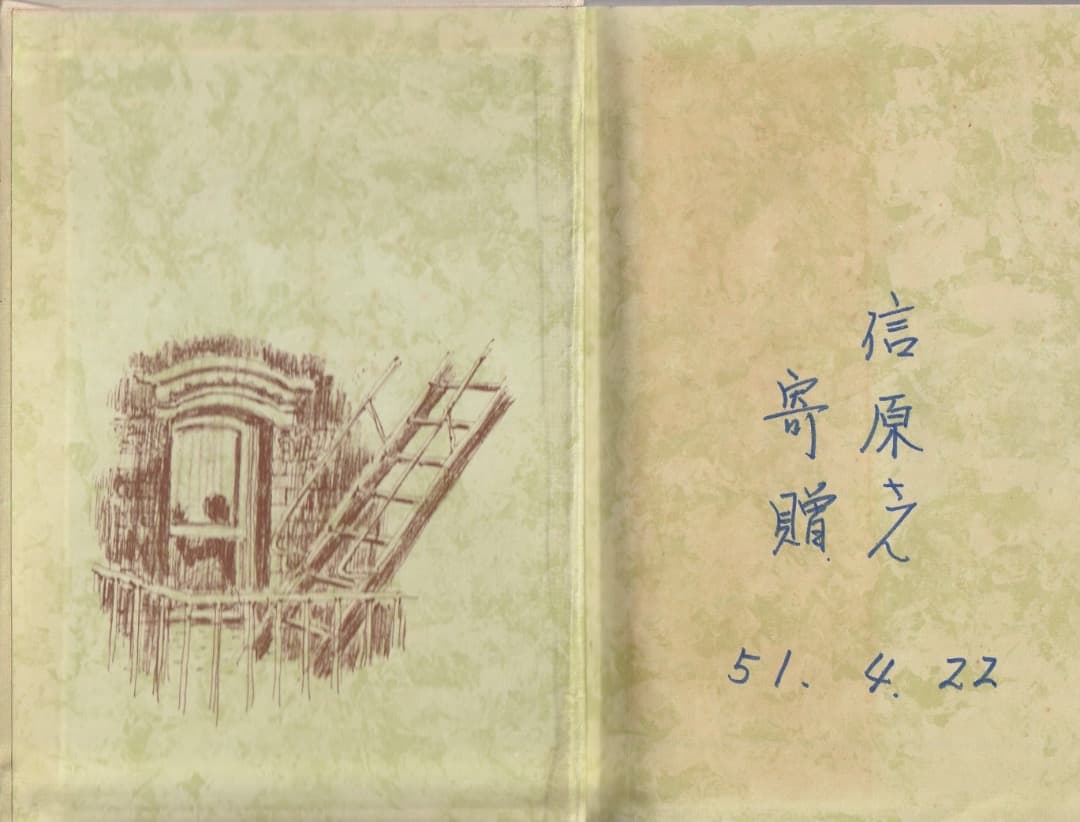 信原さん
寄贈
51. 4. 22